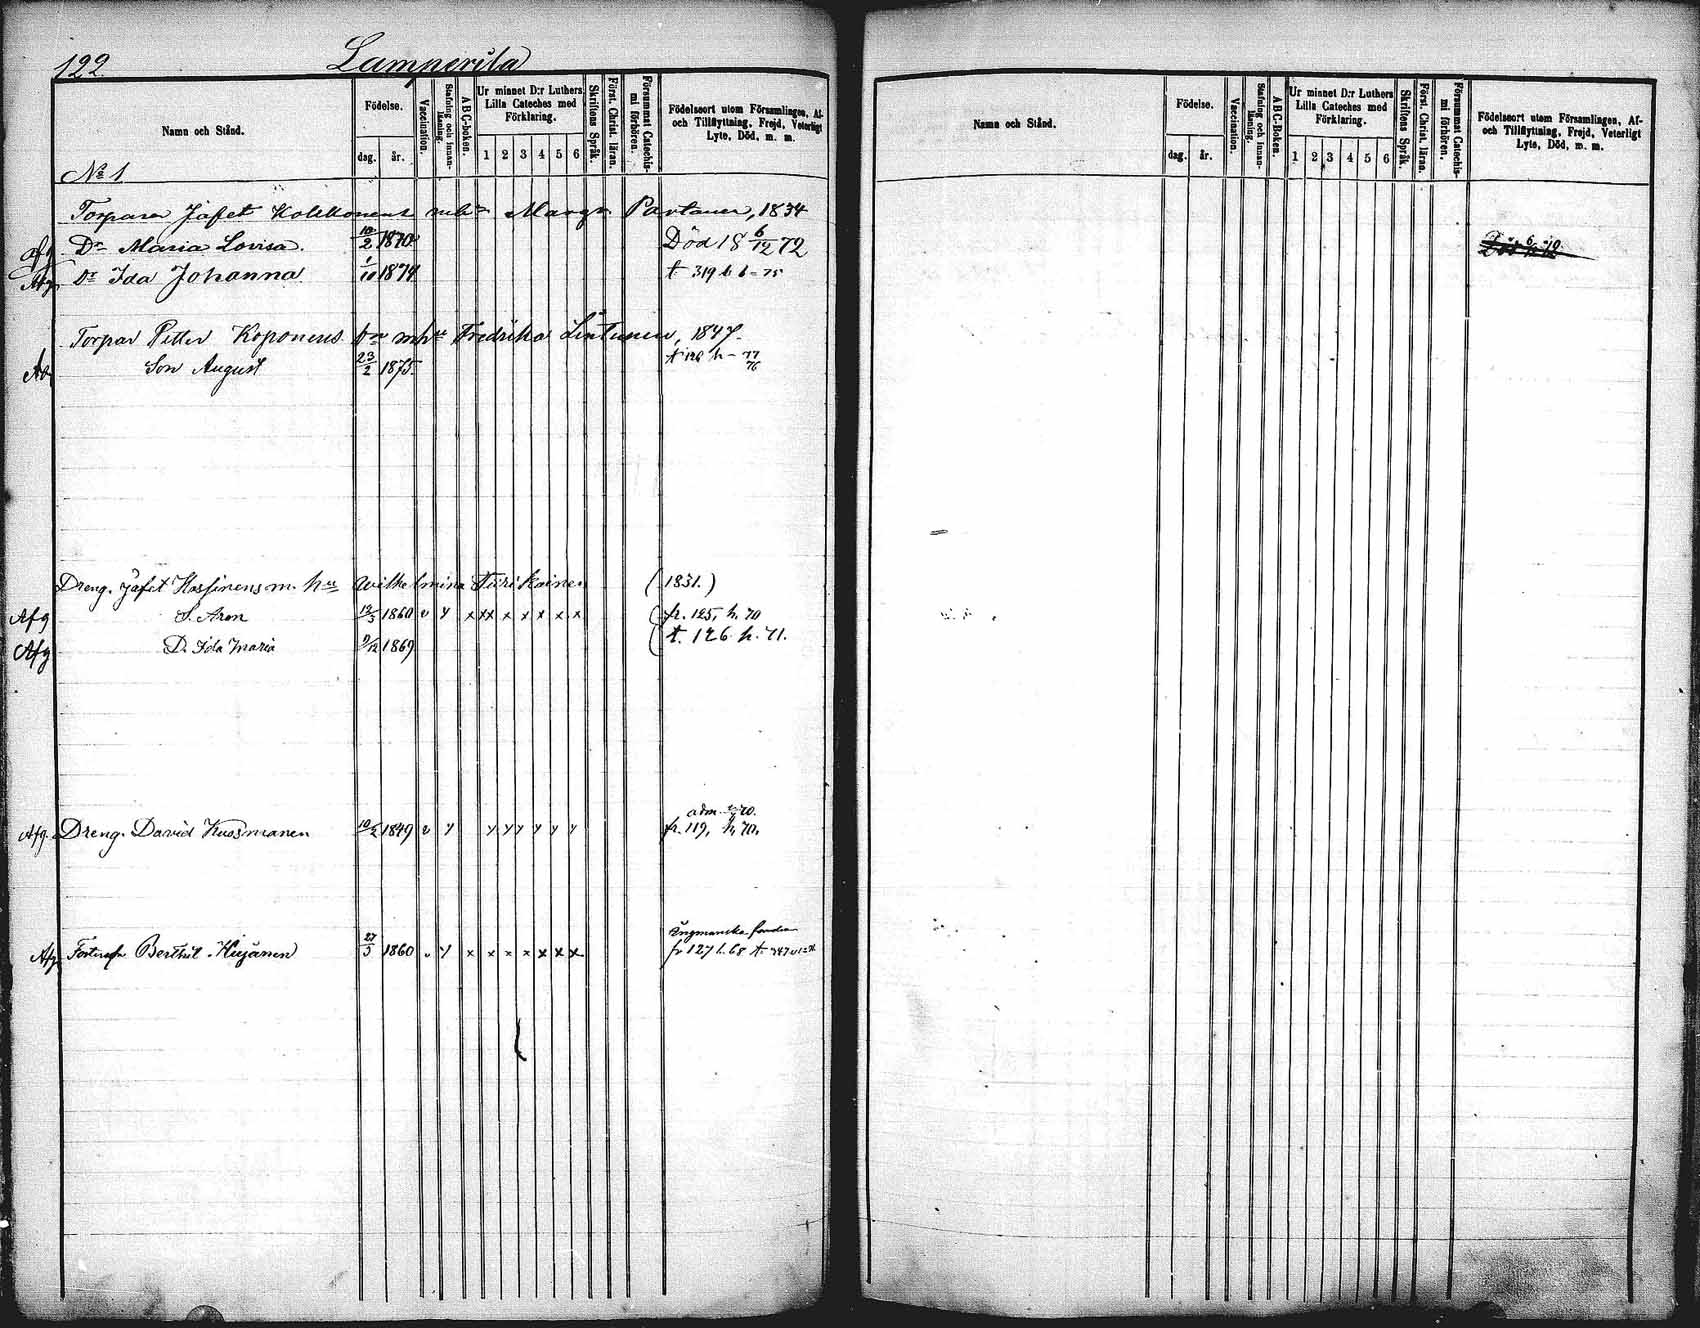 122. Lamperila
Namn och Stånd.
Födelse.
dag. år.
Vaccination.
Stafning och innanläsning.
A B C-boken.
Ur minnet D:r Luthers Lilla Cateches med Förklaring.
1 2 3 4 5 6
Skriftens Språk.
Först. Christ. läran.
Försummat Catechismi förhören.
Födelseort utom Församlingen, Af- och Tillflyttning, Frejd, Veterligt Lyte, Död, m. m.
No 1
Torparen Jafet Kolehonens mh Margr. Partanen, 1834
afg Dr Maria Lovisa. 10/2 1870 Död 18 6/12 72
Afg Dr Ida Johanna 1/10 1874 t. 319 b b = 75
Torpar Petter Koponens mhu Fredrika Lintunen, 1847.
Son August 23/2 1875. t 126 h - 77/76
Dreng. Jafet Hassinens m. hu Wilhelmina Turikainen (1831.)
Afg S. Aron 12/3 1860 v y x xx x x x x x fr. 125, h. 70
Afg D. Ida Maria 9/12 1869 t. 126 h. 71.
adm. 70.
Afg. Dreng. David Kuosmanen 10/2 1849 v y y y y y y y fr. 119, h. 70.
Afg Berthil Hujanen 27/3 1860 v y x x x x x x x fr 127 h. 68 t.
Namn och Stånd.
Födelse.
dag. år.
Vaccination.
Stafning och innanläsning.
A B C-Boken.
Ur minnet D:r Luthers Lilla Cateches med Förklaring.
1 2 3 4 5 6
Skriftens Språk.
Först. Christ. läran.
Försummat Catechismi förhören.
Födelseort utom Församlingen, Af- och Tillflyttning, Frejd, Veterligt Lyte, Död, m. m.